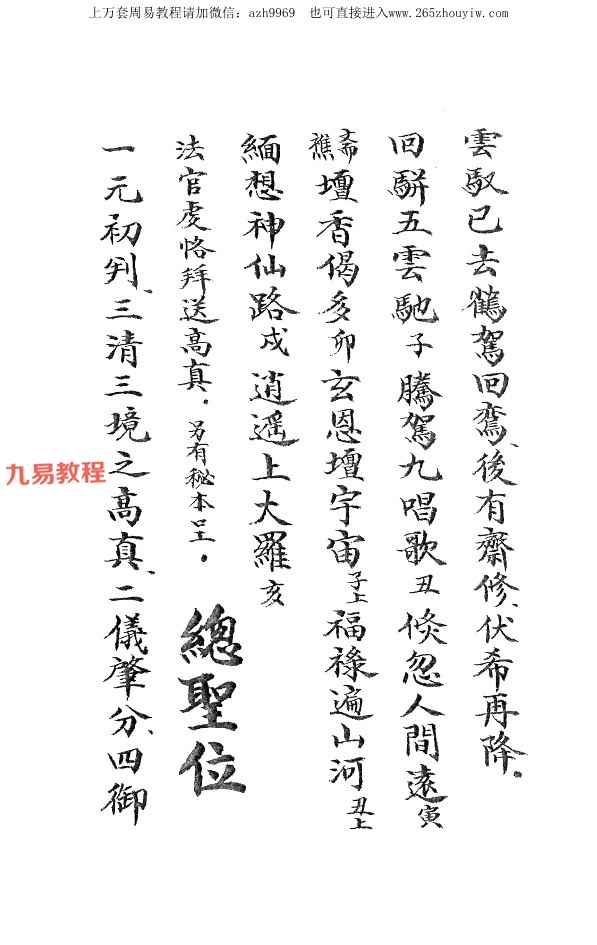 上万套周易教程请加微信：azh9969 也可直接进入www.265zhouyiw.com
雲馭已去鶴駕回鸞、後有齋修、伏希再降。
回駢五雲馳子騰駕九唱歌丑倐忽人間遠寅
斋醮壇香偈多卯玄恩壇宇宙子上福祿遍山河丑上
緬想神仙路戍逍遥上大羅亥
法官虔恪拜送高真。另有秘本呈。總聖位
一元初判、三清三境之高真、二儀肇分、四御
九易教程